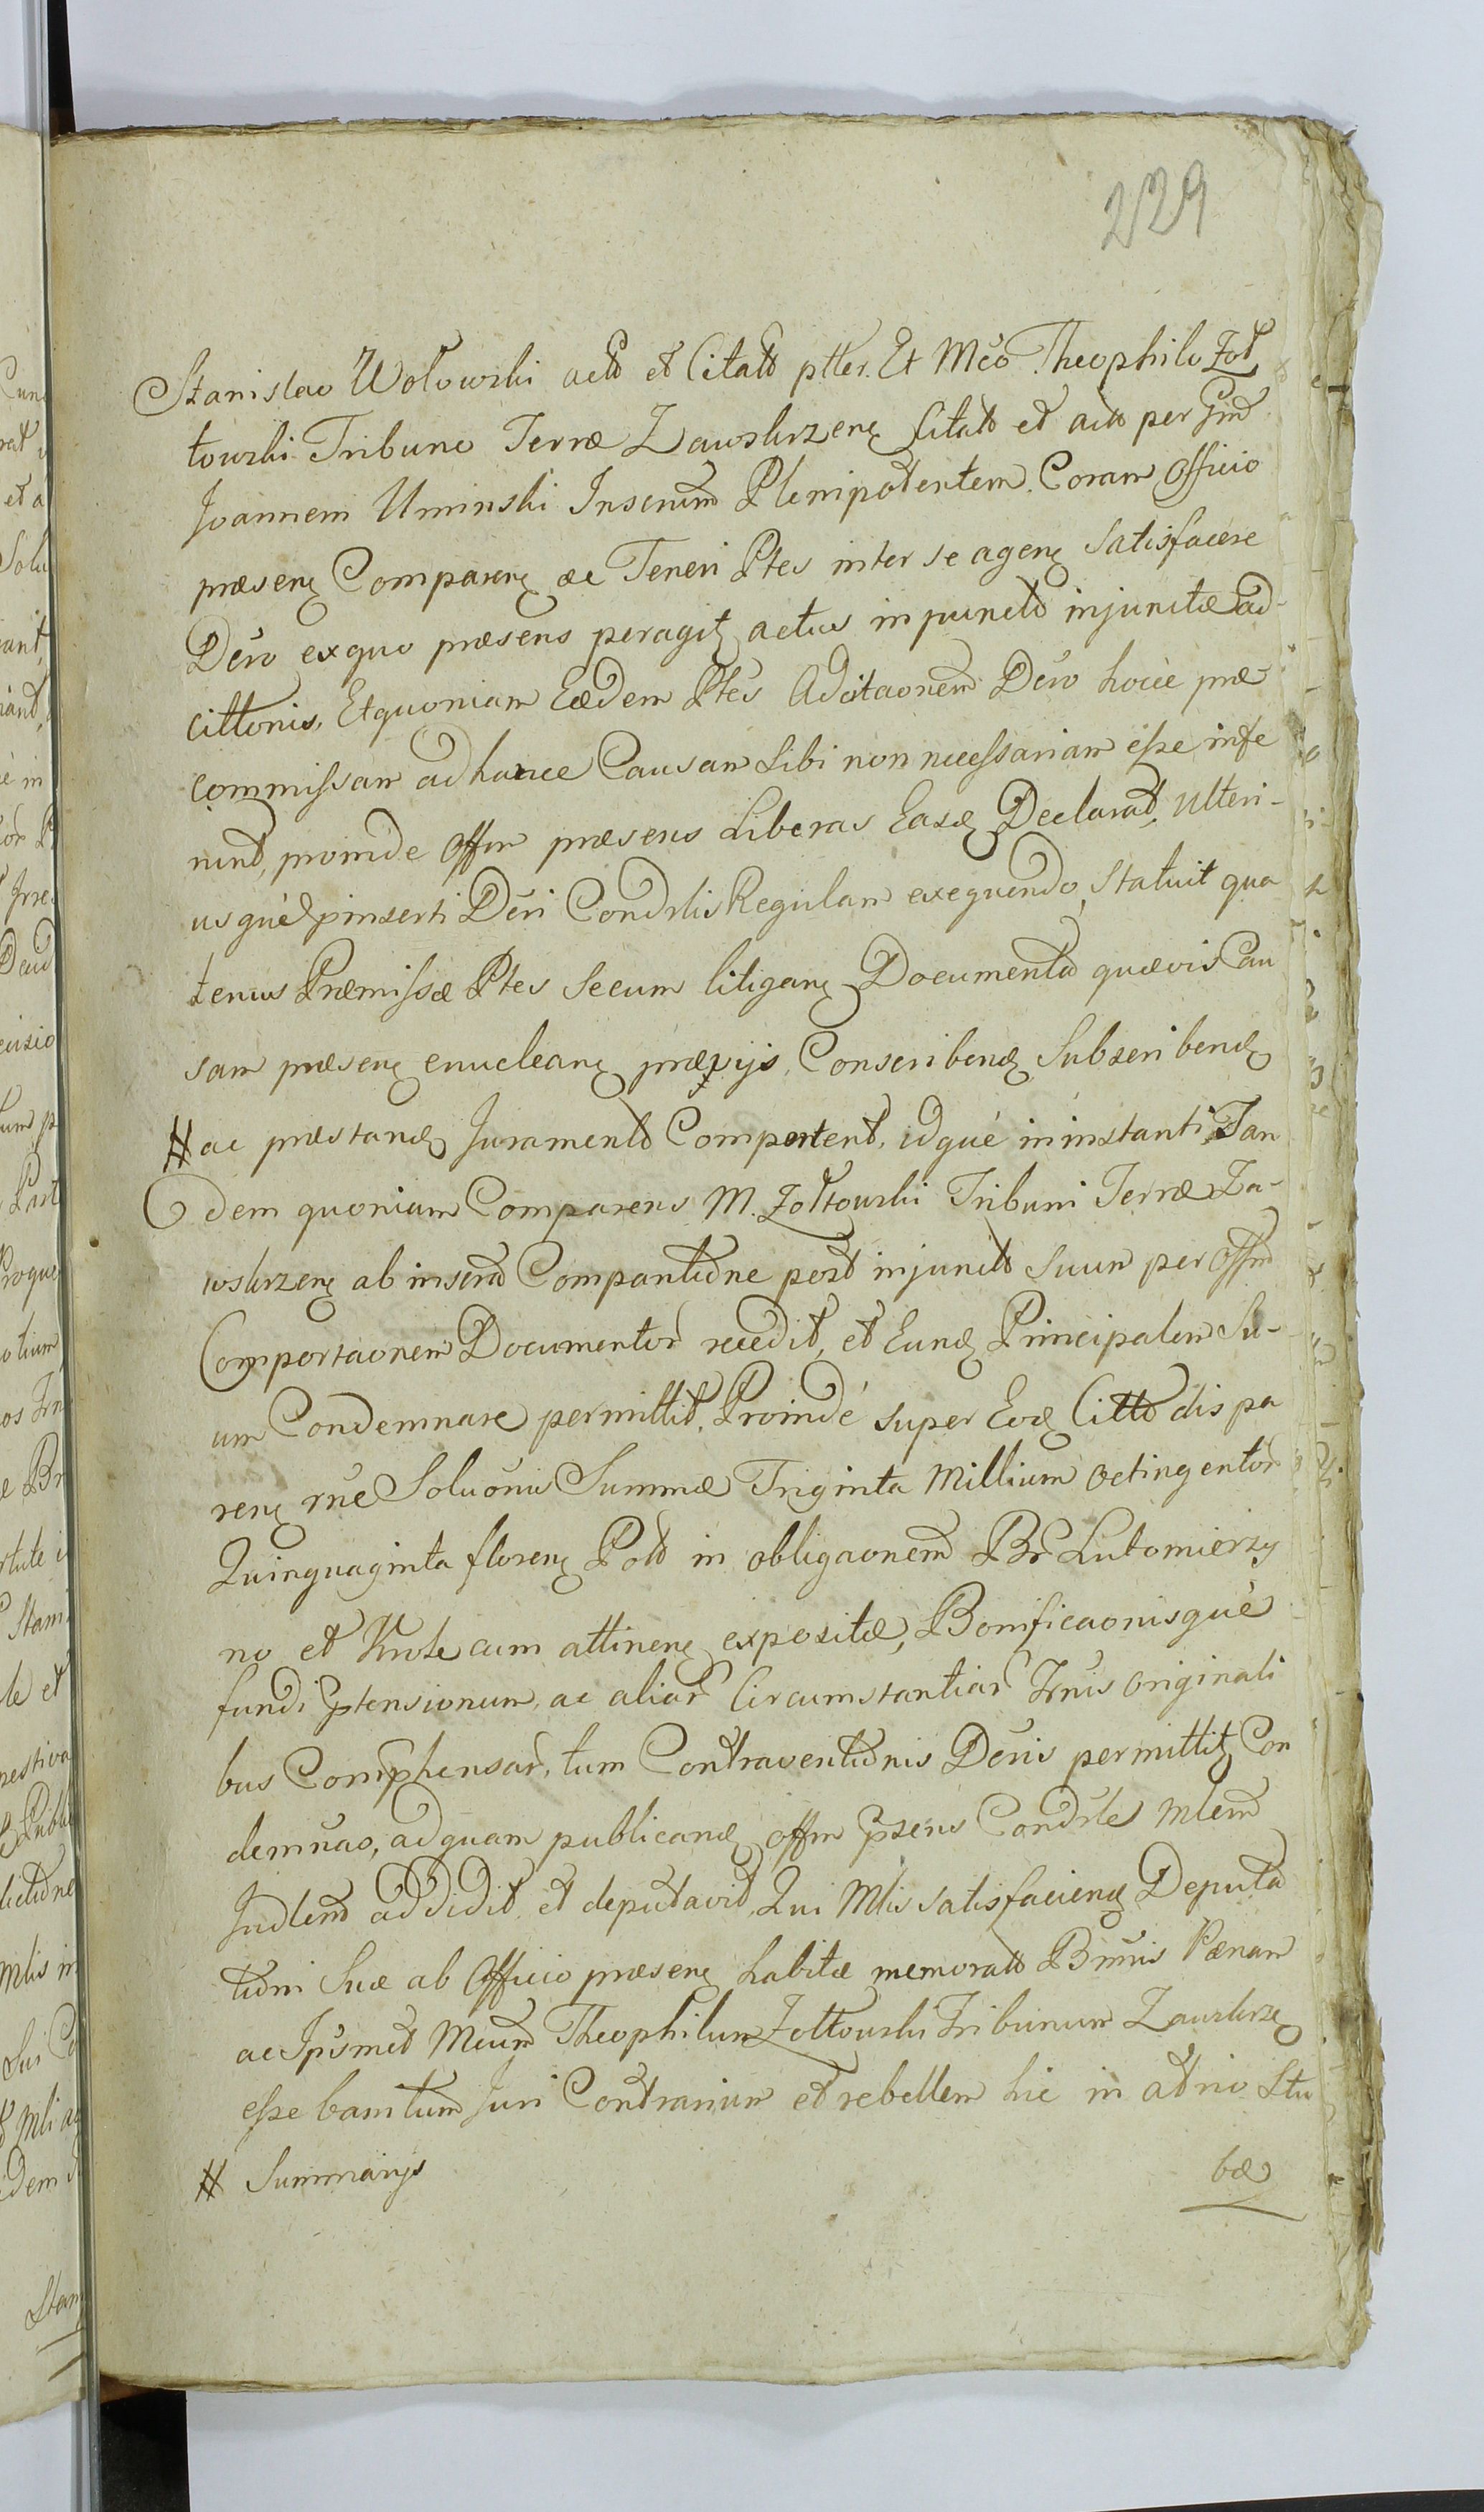 229
Stanislao Wołowski actō et Citatō ptter. Et Mco Theophilo Żoł
towski Tribuno Terræ Zawskrzenę Citatō et actō per Gnd
Joannem Uminski Inserend Plenipotentem. Coram Officio
præsenę Comparenę ac Teneri Ptes inter se agenę Satisfacere
Dcro exquo præsens peragitę actus in punctō injunctæ ad-
cittonis, Etquoniam Eædem Ptes Adcitaonem Dcro hocce præ
commissam ad hancce Causam Sibi non necessariam esse infe
runt, proinde Offm præsens Liberas Easdę Declarat, Ulteri-
usque pinserti Dcri Condrlis Regulam exequendo, Statuit qua
tenus Præmissæ Ptes Secum litiganę Documenta quævis Cau
sam præsenę enucleanę prævijs Conscribendę Subscribendę
# ac præstandę Juramentō Comportent, idque in instanti, Tan
dem quoniam Comparens M. Żołtowski Tribuni Terræ Za-
wskrzenę ab inserta Comparitione post injunctō Suum per Offm
Comportaonem Documentor recedit, et Eundę Principalem Su-
um Condemnare permittit. Proindé super Eodę Cittō dispa
renę rne Soluonis Summæ Triginta Millium Octingentor
Quinquaginta florenę Polō in obligaonem Br Lutomierzy
no et Krole cum attinenę expositæ, Bonificaonisque
fundi ptensionum, ac aliar Circumstantiar Trnis Originali
bus Comphensar, tum Contraventionis Dcris permittitę Con
demnao, ad quam publicandę offm psens Condrle Mlem
Judlem addidit et deputavit, Qui Mlis satisfaciendę Deputa
tioni Suæ ab Officio præsenę habitæ memoratō Bnnis Pænam
ac Ipsmet Mcum Theophilum Żołtowski Tribunum Zawskrzę
esse banitum Juri Contrarium et rebellem hic in atrio Stu
# Summarijs
bæ